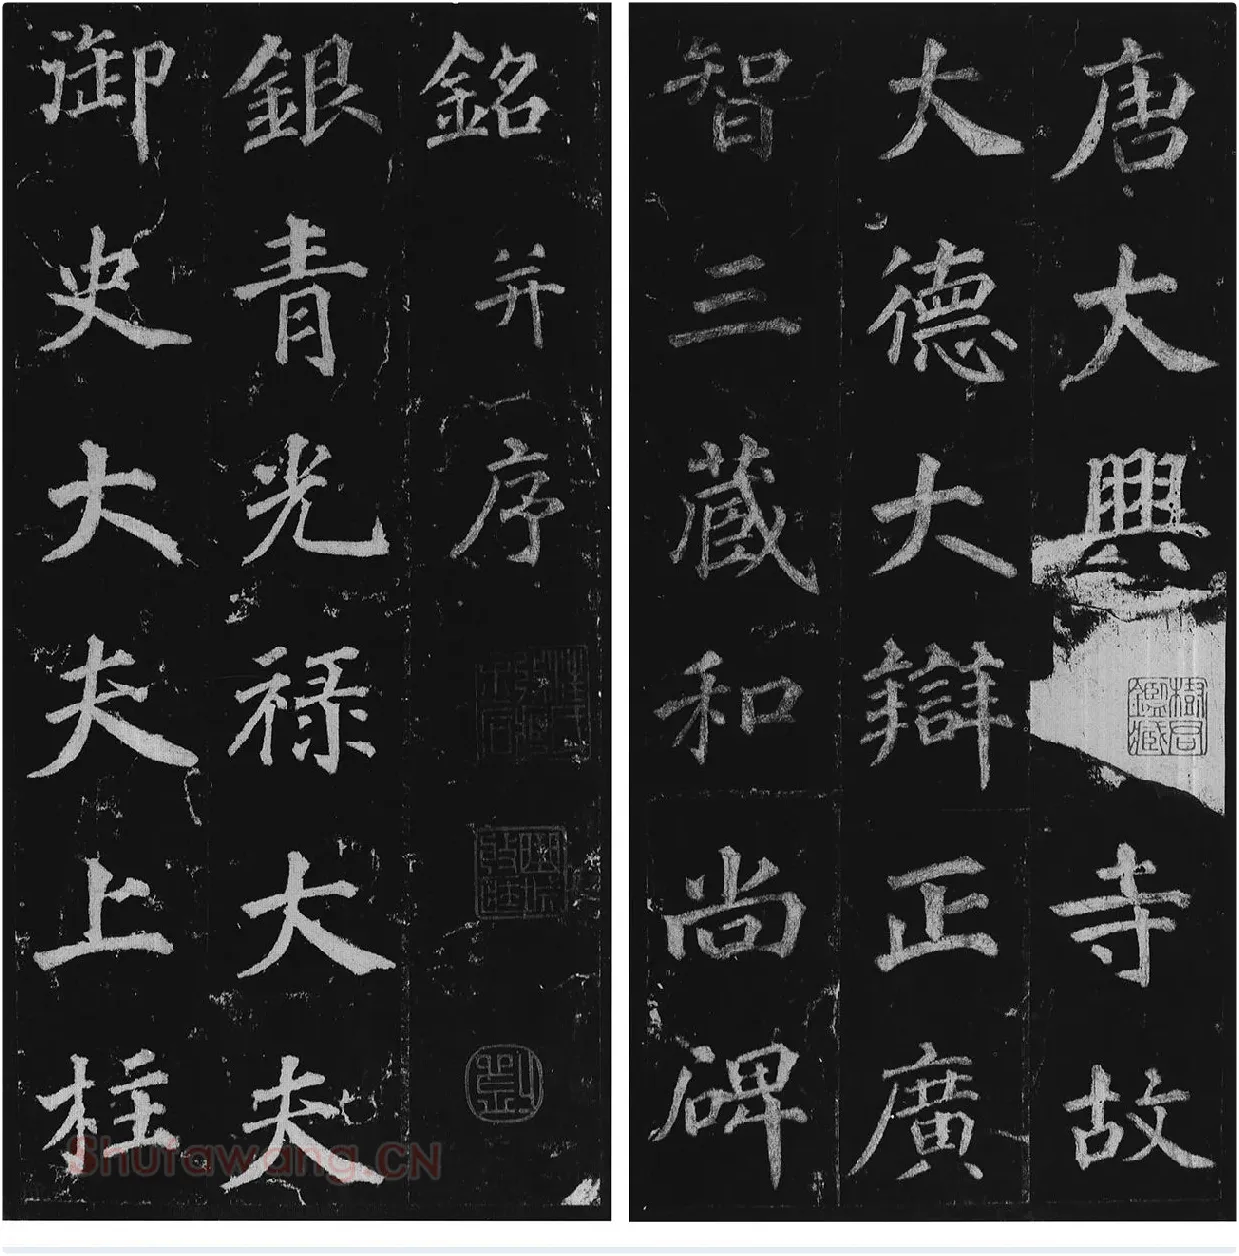 唐大興寺故
大德大辯正廣
智三藏和尚碑
銘并序
銀青光禄大夫
御史大夫上柱
Shufawang.CN